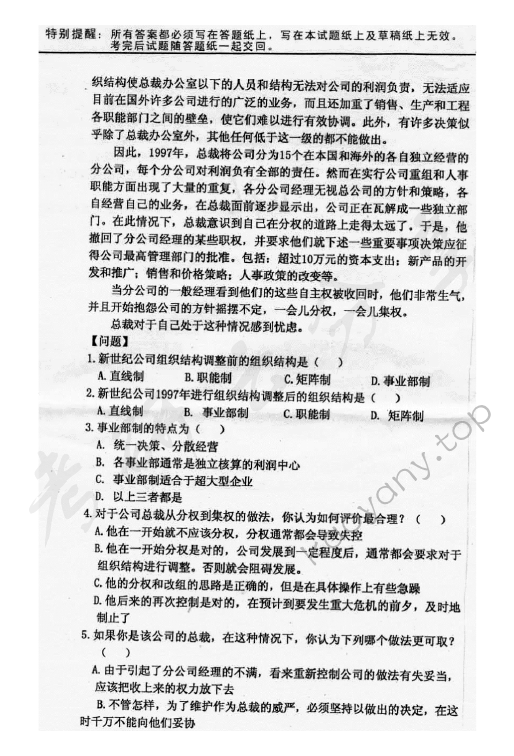 特别提醒：所有答案都必须写在答题纸上，写在本试题纸上及草稿纸上无效。
考完后试题随答题纸一起交回。
织结构使总裁办公室以下的人员和结构无法对公司的利润负责，无法适应
目前在国外许多公司进行的广泛的业务，而且还加重了销售、生产和工程
各职能部门之间的壁垒，使它们难以进行有效协调。此外，有许多决策似
乎除了总裁办公室外，其他任何低于这一级的都不能做出。
因此，1997年，总裁将公司分为15个在本国和海外的各自独立经营的
分公司，每个分公司对利润负有全部的责任。然而在实行公司重组和人事
职能方面出现了大量的重复，各分公司经理无视总公司的方针和策略，各
自经营自己的业务，在总裁面前逐步显示出，公司正在瓦解成一些独立部
门。在此情况下，总裁意识到自己在分权的道路上走得太远了。于是，他
撤回了分公司经理的某些职权，并要求他们就下述一些重要事项决策应征
得公司最高管理部门的批准。包括：超过10万元的资本支出；新产品的开
发和推广；销售和价格策略；人事政策的改变等。
当分公司的一般经理看到他们的这些自主权被收回时，他们非常生气，
并且开始抱怨公司的方针摇摆不定，一会儿分权，一会儿集权。
总裁对于自己处于这种情况感到忧虑。
【问题】
1.新世纪公司组织结构调整前的组织结构是（ ）
A.直线制 B.职能制 C.矩阵制 D.事业部制
2.新世纪公司1997年进行组织结构调整后的组织结构是（ ）
A.直线制 B. 事业部制 C.职能制 D. 矩阵制
3.事业部制的特点为（ ）
A. 统一决策、分散经营
B. 各事业部通常是独立核算的利润中心
C. 事业部制适合于超大型企业
D. 以上三者都是
4.对于公司总裁从分权到集权的做法，你认为如何评价最合理？（ ）
A.他在一开始就不应该分权，分权通常都会导致失控
B.他在一开始分权是对的，公司发展到一定程度后，通常都会要求对于
组织结构进行调整。否则就会阻碍发展。
C.他的分权和改组的思路是正确的，但是在具体操作上有些急躁
D.他后来的再次控制是对的，在预计到要发生重大危机的前夕，及时地
制止了
5.如果你是该公司的总裁，在这种情况下，你认为下列哪个做法更可取？
（ ）
A.由于引起了分公司经理的不满，看来重新控制公司的做法有失妥当，
应该把收上来的权力放下去
B.不管怎样，为了维护作为总裁的威严，必须坚持以做出的决定，在这
时千万不能向他们妥协